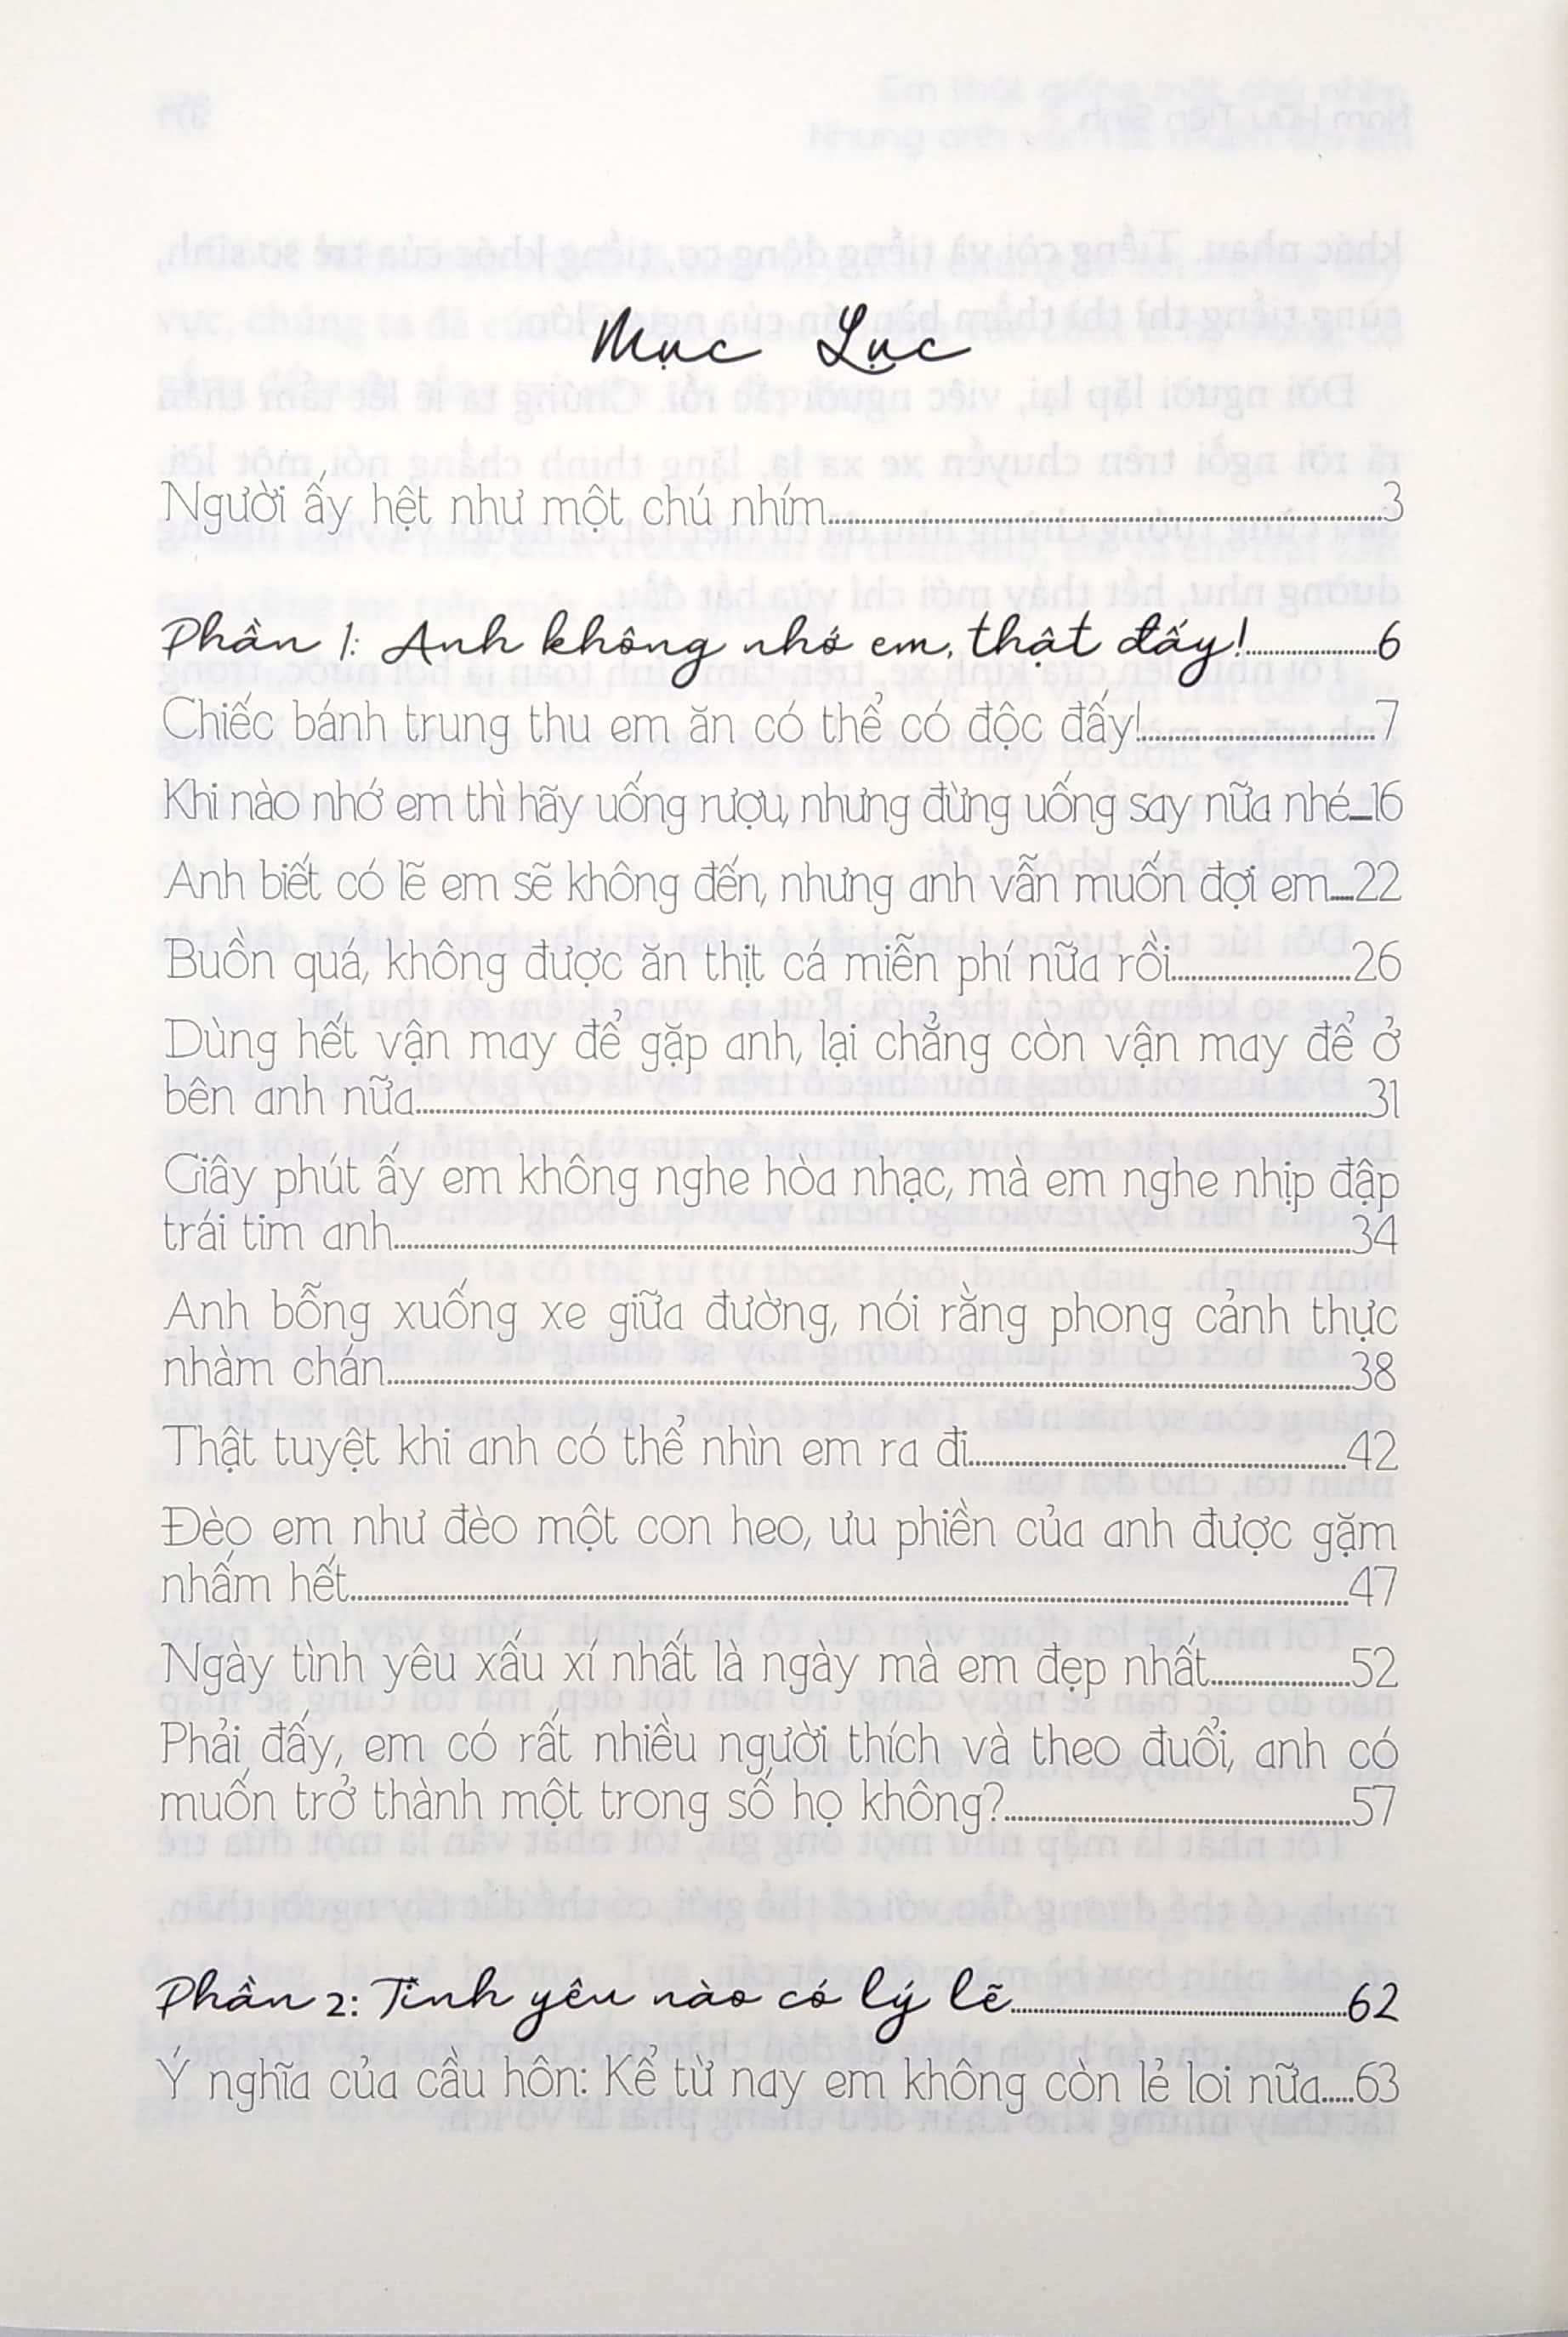 Mục Lục
Người ấy hệt như một chú nhím.....3
Phần 1: Anh không nhớ em, thật đấy!.....6
Chiếc bánh trung thu em ăn có thể có độc đấy!.....7
Khi nào nhớ em thì hãy uống rượu, nhưng đừng uống say nữa nhé...16
Anh biết có lẽ em sẽ không đến, nhưng anh vẫn muốn đợi em....22
Buồn quá, không được ăn thịt cá miễn phí nữa rồi.....26
Dùng hết vận may để gặp anh, lại chẳng còn vận may để ở
bên anh nữa.....31
Giây phút ấy em không nghe hòa nhạc, mà em nghe nhịp đập
trái tim anh.....34
Anh bỗng xuống xe giữa đường, nói rằng phong cảnh thực
nhàm chán.....38
Thật tuyệt khi anh có thể nhìn em ra đi.....42
Đèo em như đèo một con heo, ưu phiền của anh được gặm
nhấm hết.....47
Ngày tình yêu xấu xí nhất là ngày mà em đẹp nhất.....52
Phải đấy, em có rất nhiều người thích và theo đuổi, anh có
muốn trở thành một trong số họ không?.....57
Phần 2: Tình yêu nào có lý lẽ.....62
Ý nghĩa của cầu hôn: Kể từ nay em không còn lẻ loi nữa.....63